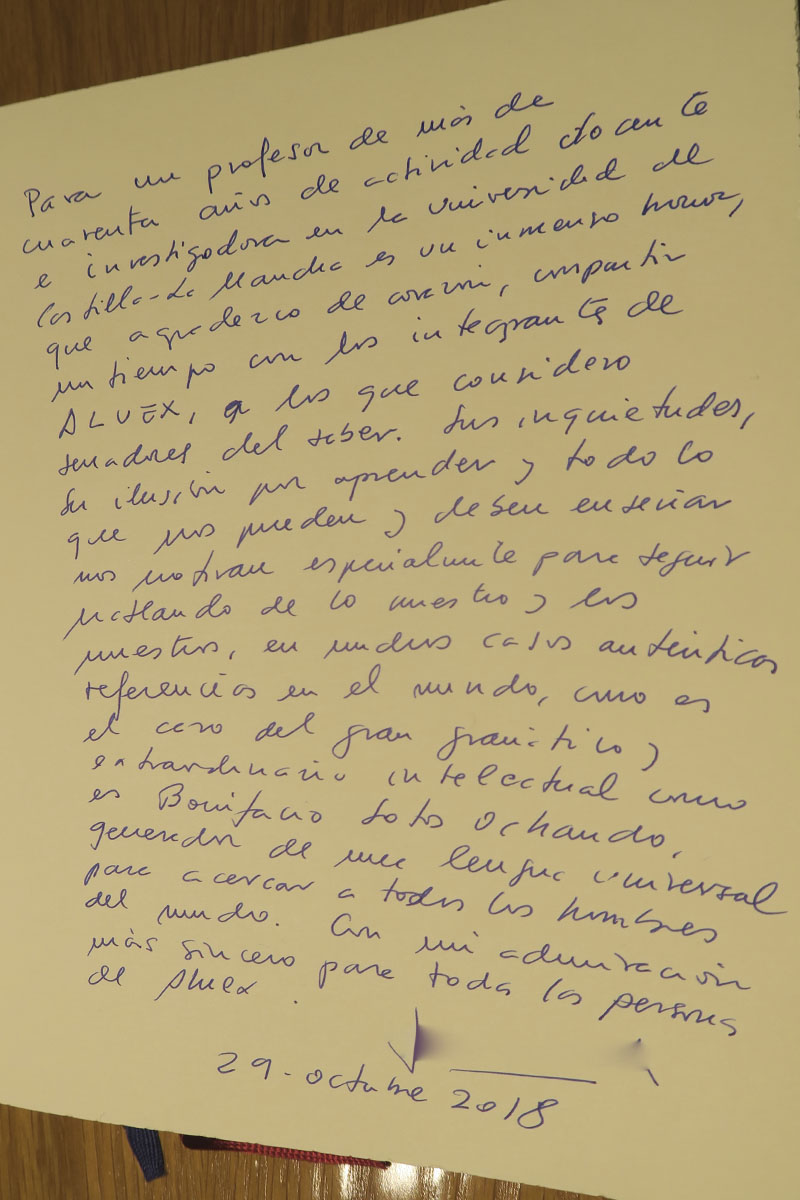 Para un profesor de más de
cuarenta años de actividad docente
e investigadora en la Universidad de
Castilla-La Mancha es un inmenso honor,
que agradezco de corazón, compartir
un tiempo con los integrantes de
ALUEX, a los que considero
senadores del saber. Sus inquietudes,
su ilusión por aprender y todo lo
que nos pueden y deben enseñar
nos motivan especialmente para seguir
hablando de lo nuestro y los
nuestros, en muchos casos auténticas
referencias en el mundo, como es
el caso del gran gramático y
extraordinario intelectual como
es Bonifacio Sotos Ochando,
generador de una lengua universal
para acercar a todos los hombres
del mundo. Con mi admiración
más sincero para todas las personas
de Aluex.
29-octubre 2018